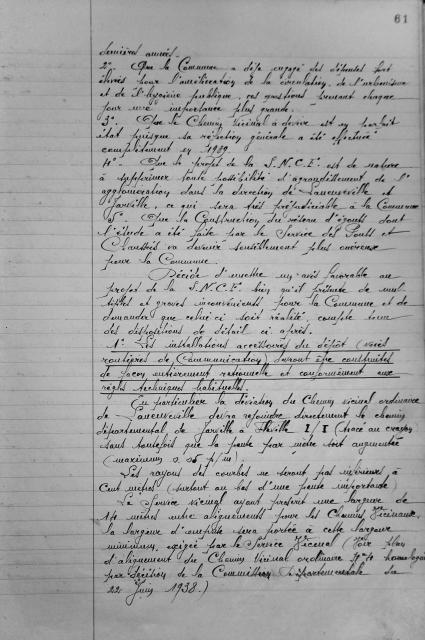 61
dernières années.
2° - Que la Commune a déjà engagé des dépenses fort
élevées pour l'amélioration de la circulation, de l'urbanisme
et de l'hygiène publique, ces questions prenant chaque
jour une importance plus grande.
3° - Que le Chemin Vicinal à dévier est en parfait
état puisque sa réfection générale a été effectuée
complètement en 1939.
4° - Que le projet de la S.N.C.F. est de nature
à supprimer toute possibilité d'agrandissement de l'
agglomération dans la direction de Laneuveville et
Jarville, ce qui sera très préjudiciable à la Commune
5° - Que la Construction du réseau d'égouts dont
l'étude a été faite par le Service des Ponts et
Chaussées va devenir sensiblement plus onéreuse
pour la Commune.
Décide d'émettre un avis favorable au
projet de la S.N.C.F. bien qu'il présente de mul
tiples et graves inconvénients pour la Commune et de
demander que celui ci soit réalisé, compte tenu
des dispositions de détail ci après.
1° Les installations accessoires du dépôt (voies
routières de Communication) devront être construites
de façon entièrement rationnelle et conformément aux
règles techniques habituelles.
En particulier la déviation du Chemin vicinal ordinaire
de Laneuveville devra rejoindre directement le chemin
départemental, de Jarville à (tracé au crayon)
sans toutefois que la pente par mètre soit augmentée
(maximum 0,05 p/m)
Les rayons des courbes ne seront pas inférieurs à
Cent mètres (surtout au bas d'une pente importante)
Le Service vicinal ayant prescrit une largeur de
14 mètres entre alignements pour les Chemins Vicinaux,
la largeur d'emprise sera portée à cette largeur
minimum, exigée par le Service Vicinal (Voir plan
d'alignement du Chemin Vicinal ordinaire homologué
par décision de la Commission départementale du
22 Juin 1938.)